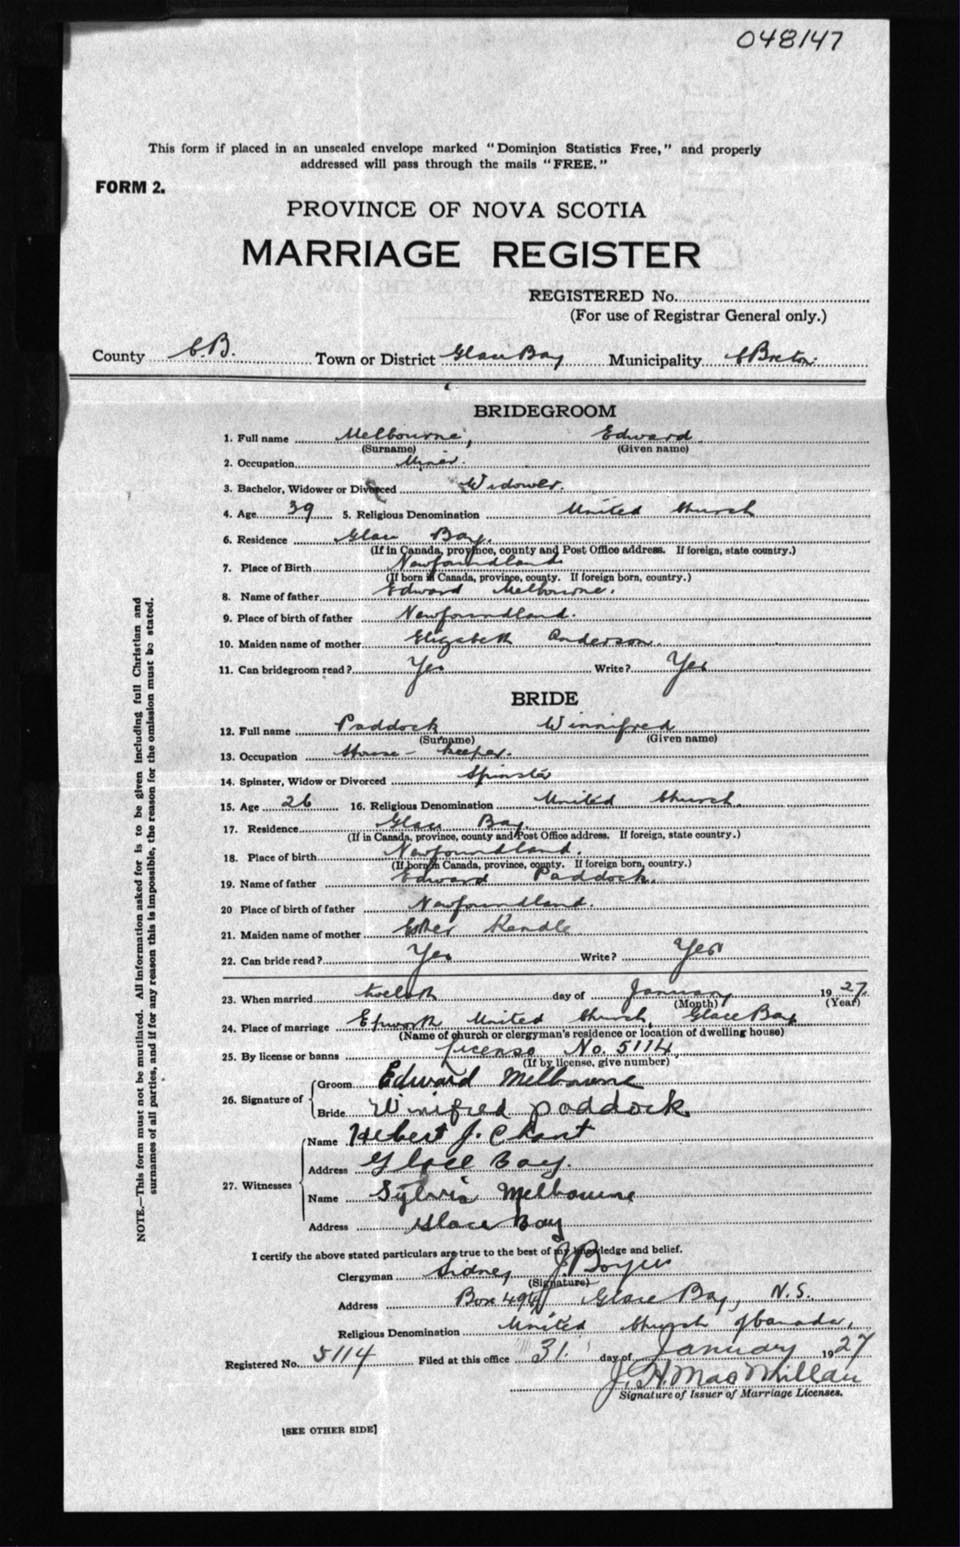 048147
This form if placed in an unsealed envelope marked "Dominion Statistics Free," and properly
addressed will pass through the mails "FREE."
FORM 2.
PROVINCE OF NOVA SCOTIA
MARRIAGE REGISTER
REGISTERED No.
(For use of Registrar General only.)
County C.B. Town or District Glace Bay Municipality C Breton.
BRIDEGROOM
1. Full name Melbourne, Edward
(Surname) (Given name)
2. Occupation Miner.
3. Bachelor, Widower or Divorced Widower.
4. Age 39 5. Religious Denomination United Church
6. Residence Glace Bay.
(If in Canada, province, county and Post Office address. If foreign, state country.)
7. Place of Birth Newfoundland
(If born in Canada, province, county. If foreign born, country.)
8. Name of father Edward Melbourne.
9. Place of birth of father Newfoundland.
10. Maiden name of mother Elizabeth Anderson.
11. Can bridegroom read? Yes Write? Yes
BRIDE
12. Full name Paddock Winnifred
(Surname) (Given name)
13. Occupation House-keeper.
14. Spinster, Widow or Divorced Spinster
15. Age 26 16. Religious Denomination United Church.
17. Residence Glace Bay.
(If in Canada, province, county and Post Office address. If foreign, state country.)
18. Place of birth Newfoundland.
(If born in Canada, province, county. If foreign born, country.)
19. Name of father Edward Paddock.
20 Place of birth of father Newfoundland.
21. Maiden name of mother Esther Kendle
22. Can bride read? Yes Write? Yes
23. When married twelfth day of January 1927.
(Month) (Year)
24. Place of marriage Epworth United Church, Glace Bay
(Name of church or clergyman's residence or location of dwelling house)
25. By license or banns License No. 5114.
(If by license, give number)
26. Signature of Groom Edward Melbourne
Bride Winifred Paddock.
27. Witnesses Name Hebert J. Chant
Address Glace Bay.
Name Sylvia Melbourne
Address Glace Bay
I certify the above stated particulars are true to the best of my knowledge and belief.
Clergyman Sidney J. Boyce
(Signature)
Address Box 496 Glace Bay, N.S.
Religious Denomination United Church of Canada.
Registered No. 5114 Filed at this office 31 day of January 1927
J. H. MacMillan
Signature of Issuer of Marriage Licenses.
[SEE OTHER SIDE]
NOTE.—This form must not be mutilated. All information asked for is to be given including full Christian and
surnames of all parties, and if for any reason this is impossible, the reason for the omission must be stated.